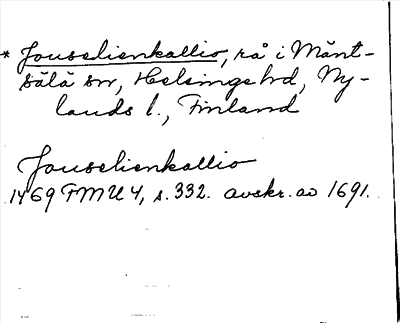 * Jouselienkallio, rå i Mänt-
sälä sn, Helsinge hd, Ny-
lands l., Finland
Jouselienkallio
1469 FMU 4, s. 332. avskr. av 1691.